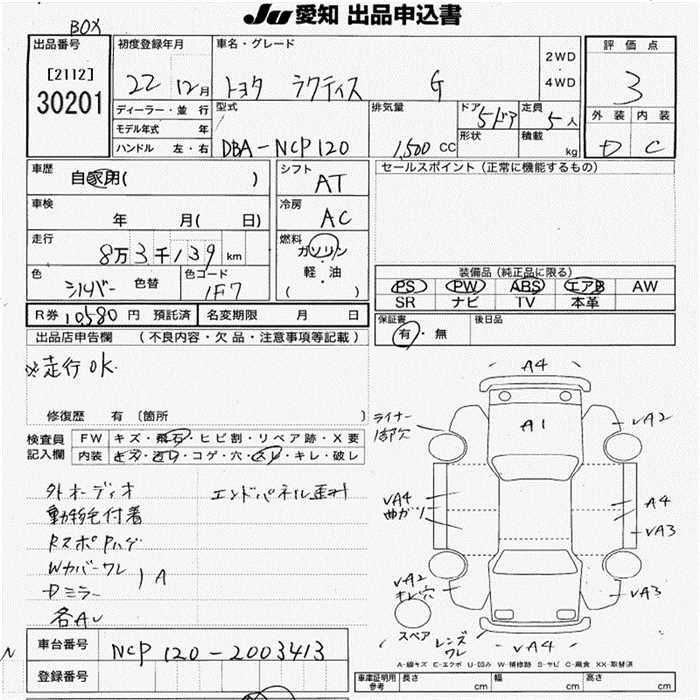 Ju 愛知 出品申込書
BOX
出品番号
[2112]
30201
初度登録年月
22 12月
ディーラー・並 行
モデル年式 年
ハンドル 左・右
車名・グレード
トヨタ ラクティス G
2WD
・
4WD
型式
DBA-NCP120
排気量
1,500 CC
ドア
5ドア
形状
定員
5人
積載
kg
評 価 点
3
外 装 内 装
D C
車歴
自家用( )
車検
年 月( 日)
走行
8万3千139 km
色
シルバー 色替
色コード
1F7
シフト
AT
冷房
AC
燃料
ガソリン
・
軽・油
( )
セールスポイント (正常に機能するもの)
装備品 (純正品に限る)
PS PW ABS エアB AW
SR ナビ TV 本革
R券 10,580 円 預託済
名変期限 月 日
保証書
有・無
後日品
出品店申告欄 (不良内容・欠品・注意事項等記載)
※走行OK
修復歴 有 〔箇所 〕
検査員
記入欄
FW キズ・飛石・ヒビ割・リペア跡・X要
内装 キズ・ヨゴレ・コゲ・穴・スレ・キレ・破レ
外オーディオ
動物毛付着
RスポPハゲ
Wカバーワレ
Dミラー
) A
各AU
エンドパネル
車台番号
NCP120-2003413
登録番号
A4
A1
ライナー
1部欠
VA2
VA4
曲ガリ
A4
VA3
VA2
キレ穴
VA3
スペア
レンズ
ワレ
VA4
A-線キズ E-エクボ U-凹み W-補修跡 S-サビ C-腐食 XX-取替済
車庫証明用
参考
長さ cm
幅 cm
高さ cm